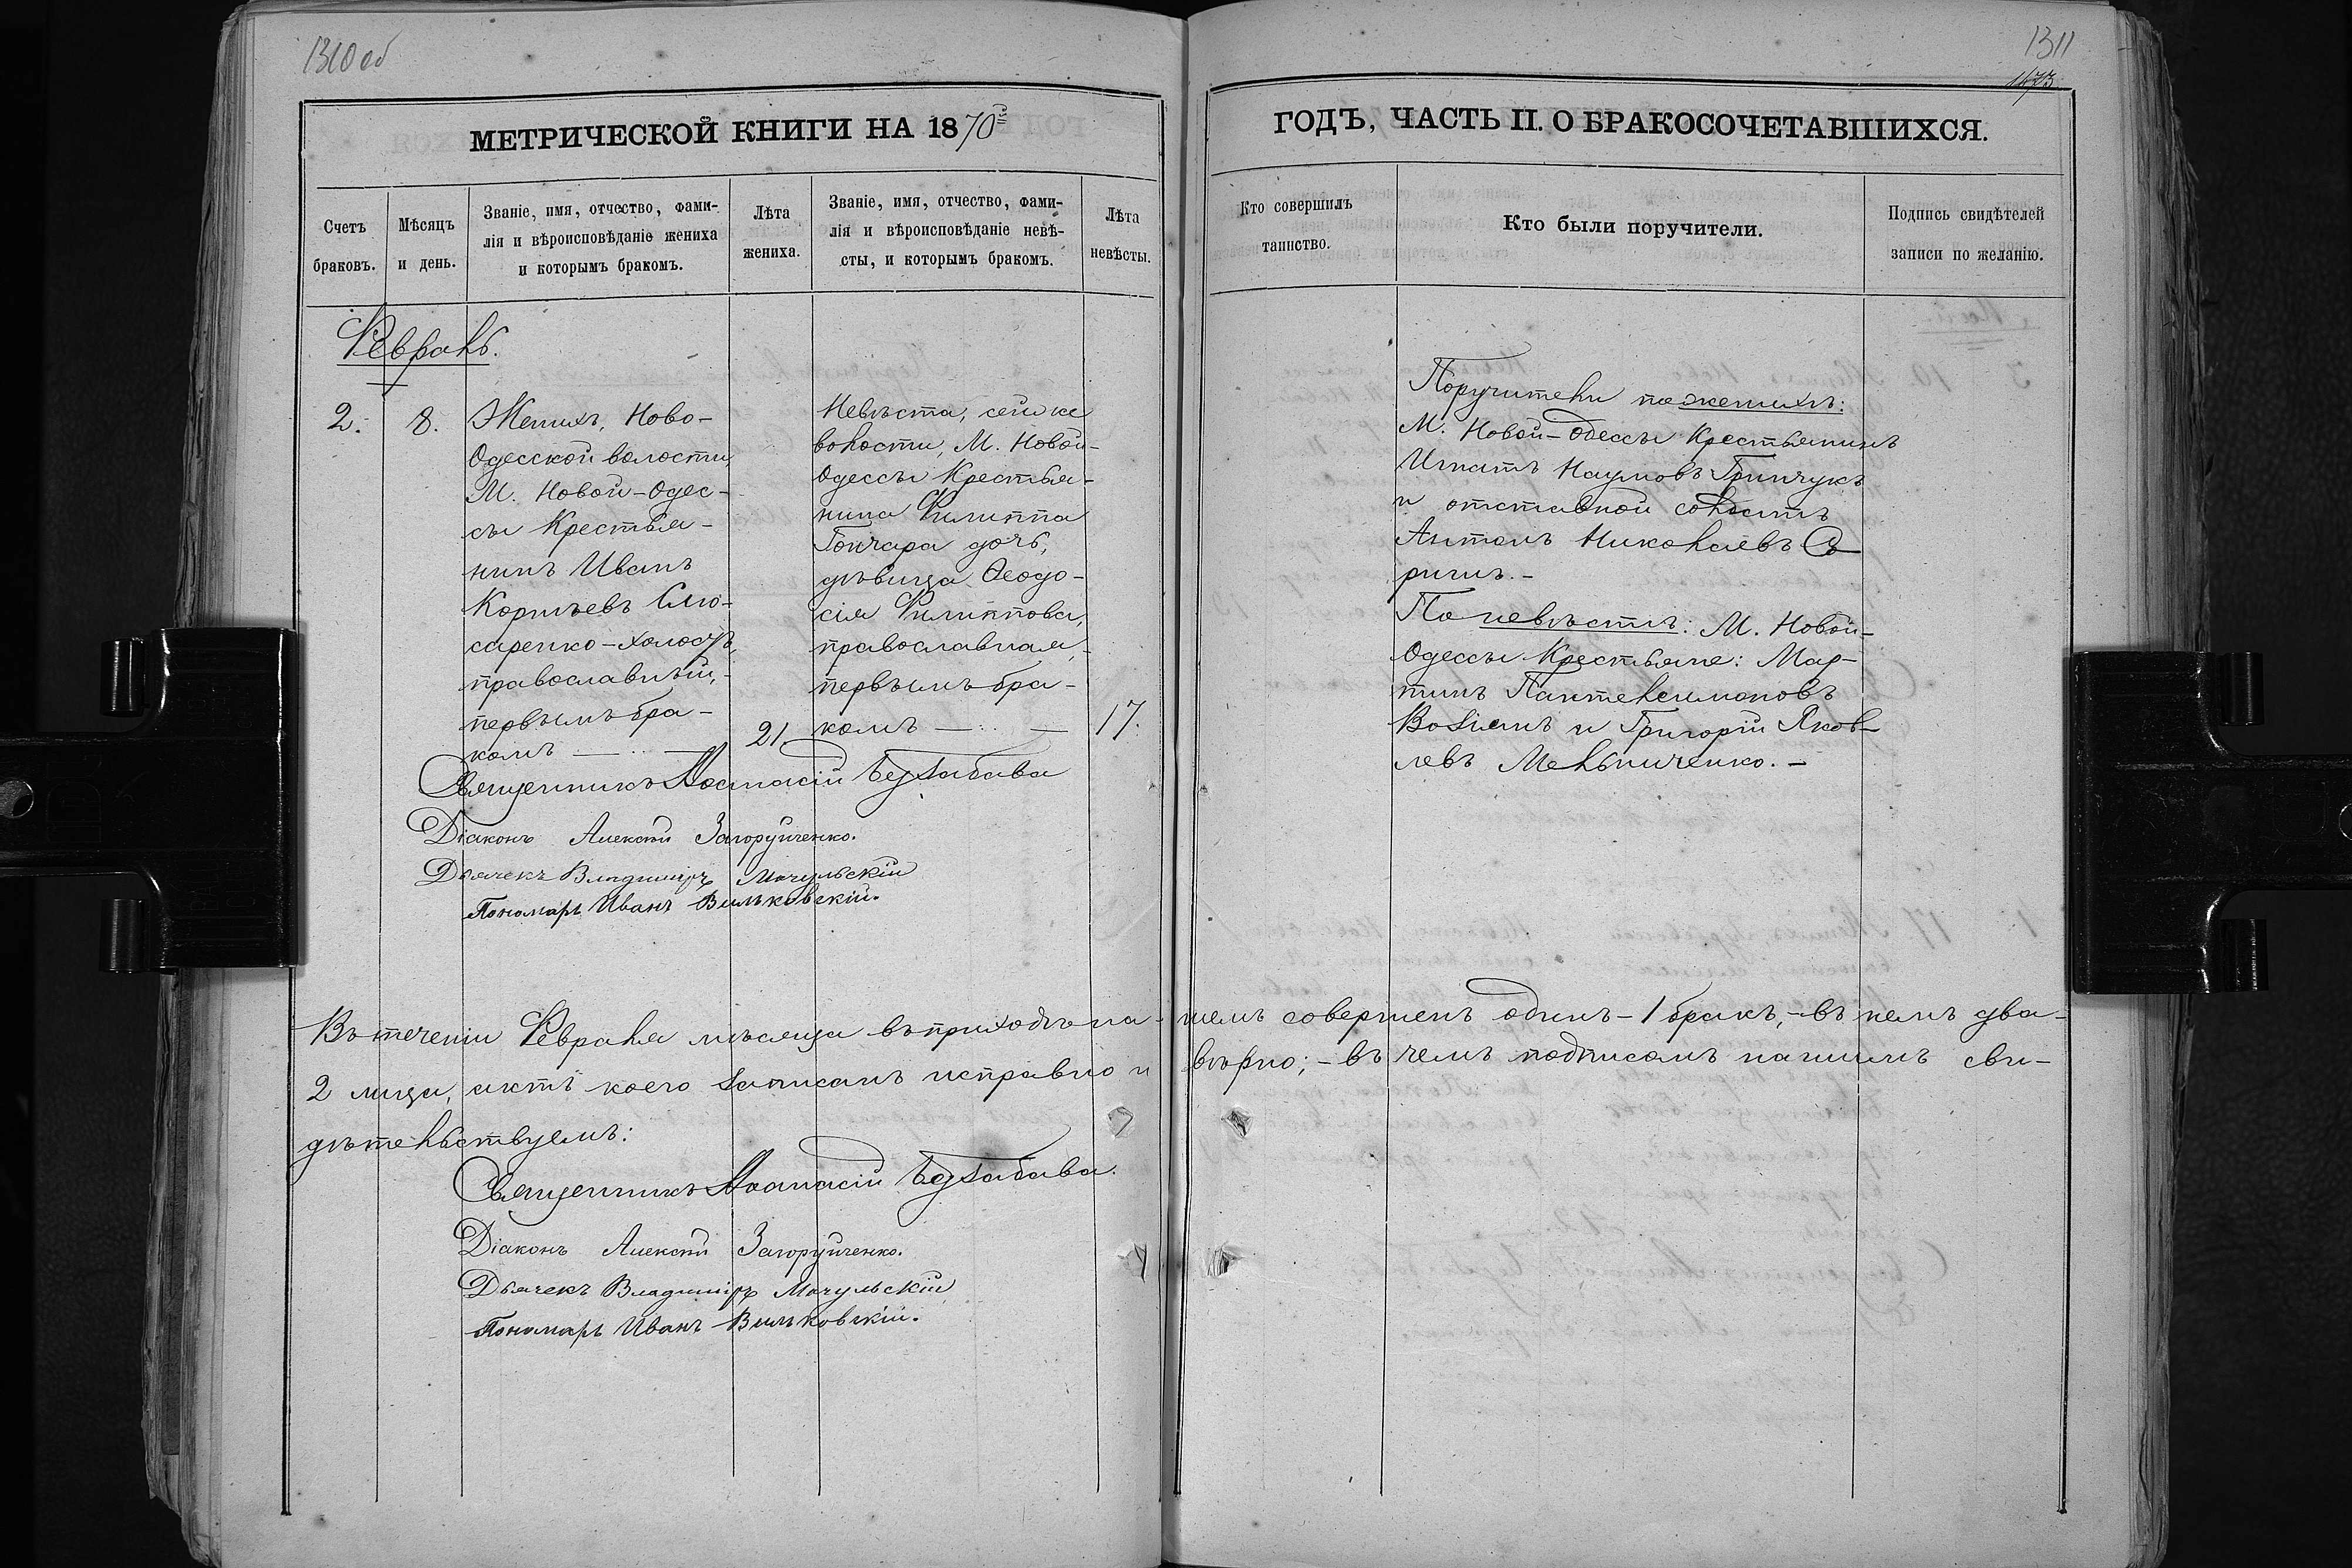 1310 об
1311
1473
МЕТРИЧЕСКОЙ КНИГИ НА 1870й
ГОДЪ, ЧАСТЬ II. О БРАКОСОЧЕТАВШИХСЯ.
Счетъ
браковъ.
Мѣсяцъ
и день.
Званіе, имя, отчество, фами-
лія и вѣроисповѣданіе жениха
и которымъ бракомъ.
Лѣта
жениха.
Званіе, имя, отчество, фами-
лія и вѣроисповѣданіе невѣ-
сты, и которымъ бракомъ.
Лѣта
невѣсты.
Кто совершилъ
таинство.
Кто были поручители.
Подпись свидѣтелей
записи по желанію.
Февраль.
2.
8.
Женихъ, Ново-
Одесской волости,
М. Новой-Одес-
сы Крестья-
нинъ Иванъ
Корнѣевъ Слю-
саренко-холостъ,
православный,-
первымъ бра-
комъ
21
Невѣста, сей же
волости, М. Новой-
Одессы Крестья-
нина Филиппа
Гончара дочь,
дѣвица Ѳеодо-
сія Филиппова,
православная,-
первымъ бра-
комъ
17.
Священникъ Аѳанасій
Діаконъ Алексѣй Загоруйченко.
Дьячекъ Владиміръ Мочульскій
Пономарь Иванъ Вильковскій.
Поручители по женихѣ:
М. Новой-Одессы Крестьянинъ
Игнатъ Наумовъ Гринчукъ
и отставной солдатъ
Антонъ Николаевъ
По невѣстѣ: М. Новой-
Одессы Крестьяне: Мар-
тинъ Пантелеимоновъ
Возіянъ и Григорій Яков-
левъ Мельниченко.-
Въ теченіи Февраля мѣсяца въ приходѣ на-шемъ совершенъ одинъ-1 бракъ,-въ немъ два-
2 лица, актъ коего записанъ исправно и вѣрно;-въ чемъ подписомъ нашимъ сви-
дѣтельствуемъ:
Священникъ Аѳанасій
Діаконъ Алексѣй Загоруйченко.
Дьячекъ Владиміръ Мочульскій
Пономарь Иванъ Вильковскій.